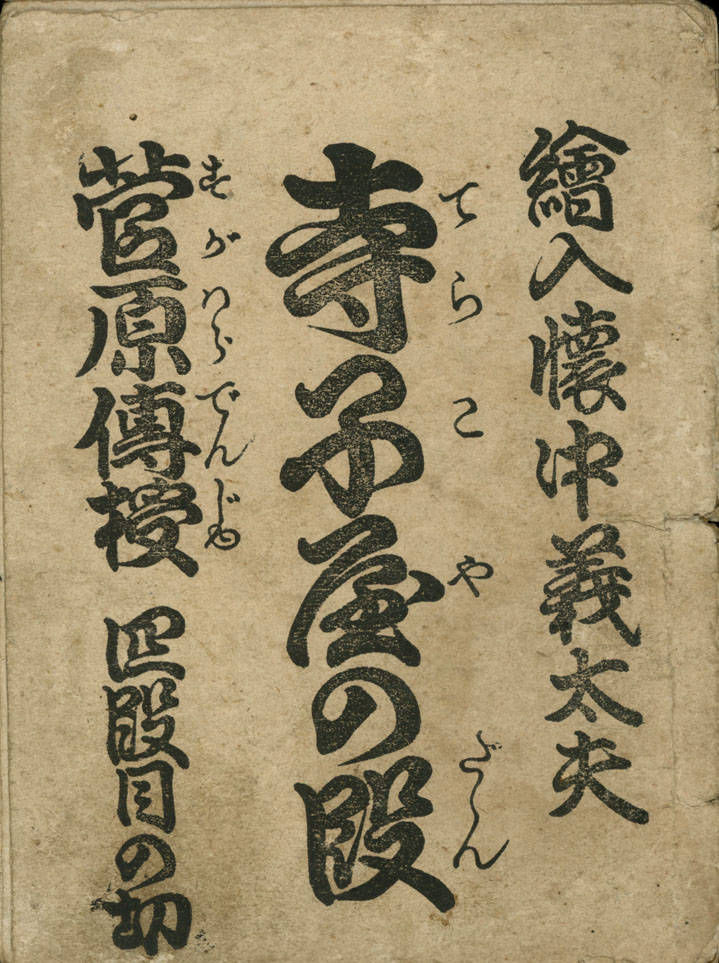 繪入懷中義太夫
寺子屋の段
てらこやだん
菅原傳授 四段目の切
すがはらでんじゆ